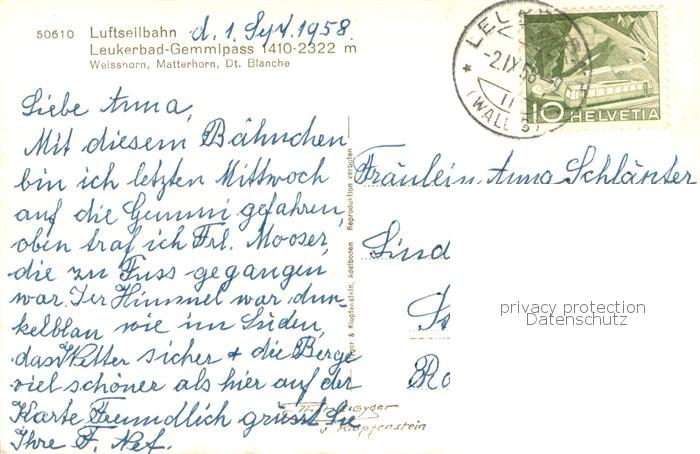 50610 Luftseilbahn d. 1. Sept. 1958.
Leukerbad-Gemmipass 1410-2322 m
Weisshorn, Matterhorn, Dt. Blanche
Liebe Anna,
Mit diesem Bähnchen
bin ich letzten Mittwoch
auf die Gemmi gefahren,
oben traf ich Frl. Mooser,
die zu Fuss gegangen
war. Der Himmel war dun-
kelblau wie im Süden,
das Wetter sicher + die Berge
viel schöner als hier auf der
Karte. Freundlich grüsst Sie
Ihre F. Nef.
Gyger & Klopfenstein, Adelboden Reproduktion verboten
-2.IX.58
10 HELVETIA
Fräulein Anna Schlänter
Lind
privacy protection
Datenschutz
Gyger
Klopfenstein